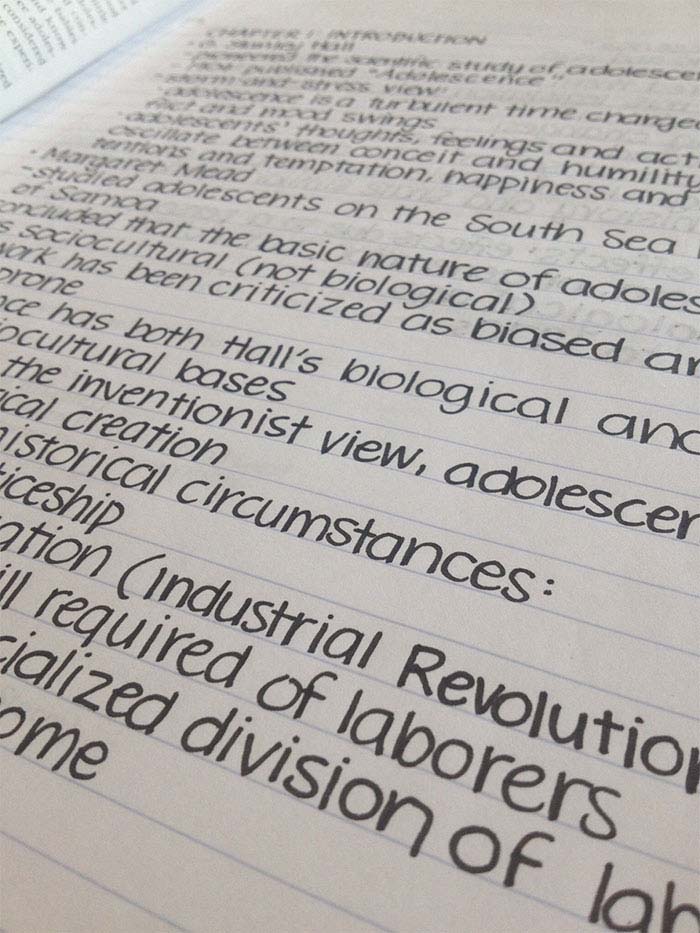 CHAPTER 1: INTRODUCTION
• G. Stanley Hall
- pioneered the scientific study of adolesce
- first published "Adolescence",
- storm-and-stress view:
- adolescence is a turbulent time charge
flict and mood swings
- adolescents' thoughts, feelings and act
oscillate between conceit and humility
tentions and temptation, happiness and
• Margaret Mead
- studied adolescents on the South Sea
of Samoa
oncluded that the basic nature of adoles
s sociocultural (not biological)
work has been criticized as biased an
prone
nce has both Hall's biological and
iocultural bases
the inventionist view, adolescen
ical creation
historical circumstances:
ticeship
ation (Industrial Revolution
ill required of laborers
cialized division of lab
ome